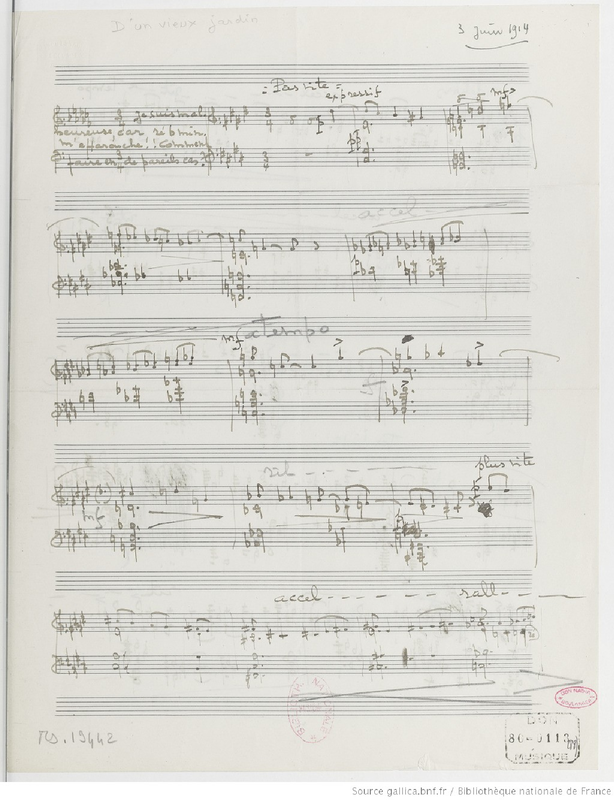 D'un vieux jardin
3 juin 1914
= Pas vite =
expressif
mf
je suis mal
heureuse, car ré b min.
m'effarouche! Comment
faire en de pareils cas!
accel
mf a tempo
plus vite
mf
accel
rall
Ms. 19442
DON
MUSIQUE
Source gallica.bnf.fr / Bibliothèque nationale de France